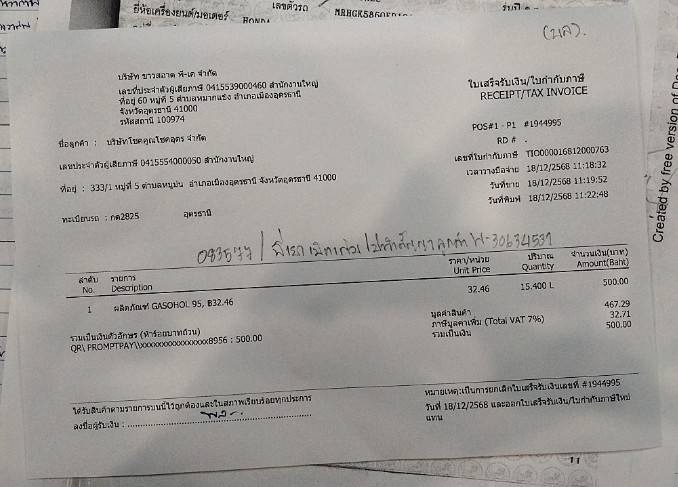 ยี่ห้อเครื่องยนต์/มอเตอร์ HONDA
เลขตัวรถ
(บิล).
บริษัท ขาวสะอาด พี-เค จำกัด
เลขที่ประจำตัวผู้เสียภาษี 0415539000460 สำนักงานใหญ่
ที่อยู่ 60 หมู่ที่ 5 ตำบลหมากแข้ง อำเภอเมืองอุดรธานี
จังหวัดอุดรธานี 41000
รหัสสถานี 100974
ใบเสร็จรับเงิน/ใบกำกับภาษี
RECEIPT/TAX INVOICE
ชื่อลูกค้า : บริษัทโชคคูณโชคอุดร จำกัด
POS#1 - P1 #1944995
RD # .
เลขประจำตัวผู้เสียภาษี 0415554000050 สำนักงานใหญ่
เลขที่ใบกำกับภาษี TIO000016812000763
เวลาวางมือจ่าย 18/12/2568 11:18:32
ที่อยู่ : 333/1 หมู่ที่ 5 ตำบลหมูม่น อำเภอเมืองอุดรธานี จังหวัดอุดรธานี 41000
วันที่ขาย 18/12/2568 11:19:52
วันที่พิมพ์ 18/12/2568 11:22:48
ทะเบียนรถ : กค2825 อุดรธานี
ลำดับ รายการ ราคา/หน่วย ปริมาณ จำนวนเงิน(บาท)
No. Description Unit Price Quantity Amount(Baht)
1 ผลิตภัณฑ์ GASOHOL 95, ฿32.46 32.46 15.400 L 500.00
มูลค่าสินค้า 467.29
รวมเป็นเงินตัวอักษร (ห้าร้อยบาทถ้วน) ภาษีมูลค่าเพิ่ม (Total VAT 7%) 32.71
QR\ PROMPTPAY\\xxxxxxxxxxxxxxxx8956 : 500.00 รวมเป็นเงิน 500.00
ได้รับสินค้าตามรายการบนนี้ไว้ถูกต้องและในสภาพเรียบร้อยทุกประการ
หมายเหตุ:เป็นการยกเลิกใบเสร็จรับเงินเลขที่ #1944995
ลงชื่อผู้รับเงิน :
วันที่ 18/12/2568 และออกใบเสร็จรับเงิน/ใบกำกับภาษีใหม่
แทน
Created by free version of